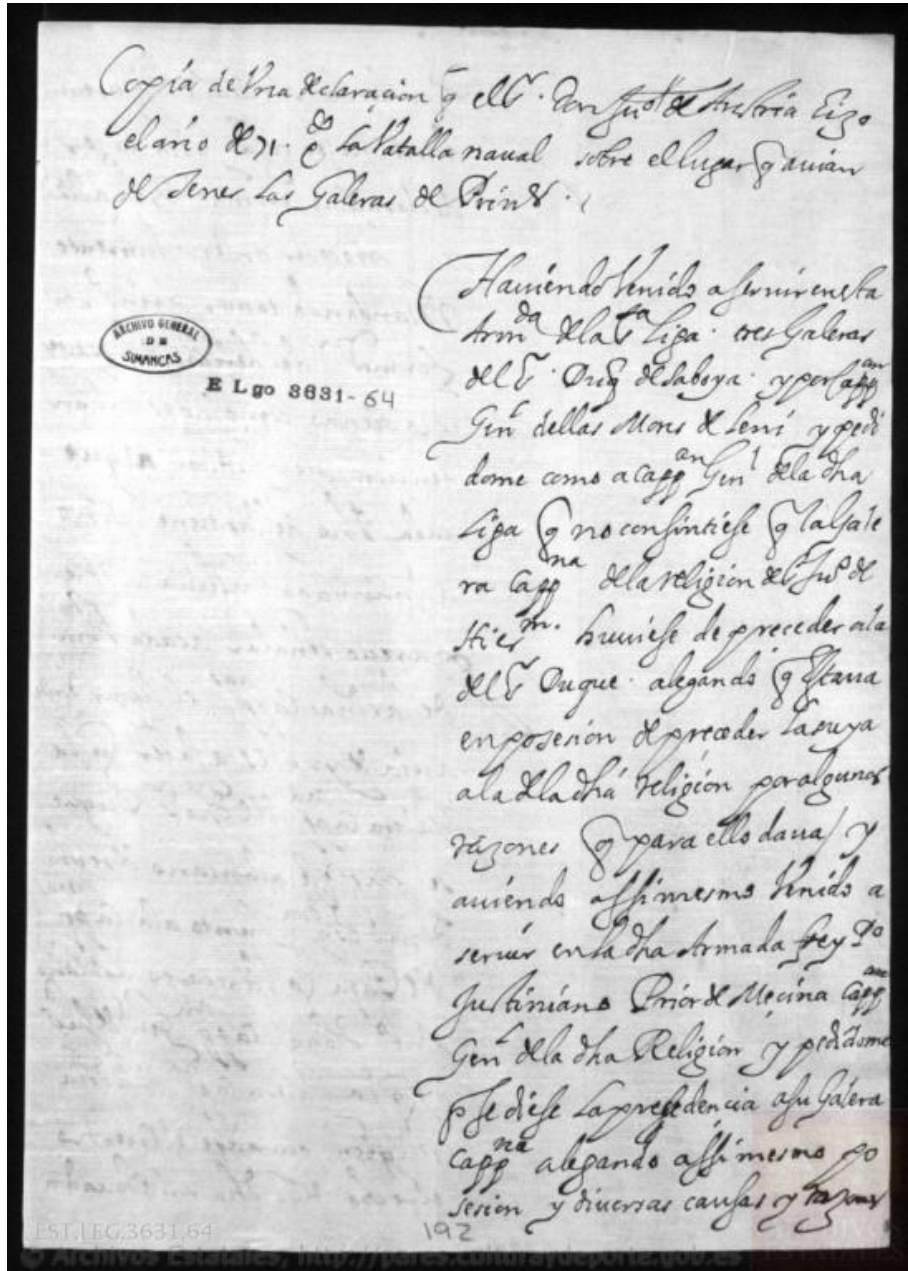 Copia de Vna declaracion q el Sr. Don Juo de Austria Hizo
el año de 71. de la Vatalla naual sobre el lugar q auian
de tener las Galeras de
Hauiendo Venido a seruir en esta
Armda de la Sta Liga. tres Galeras
del Sr. Duq de Saboya. y por Cappan
Genl dellas Mons de Leni y pedi
dome como a Cappan Genl de la dha
Liga q no consintiese q la Gale
ra Cappna de la religion de S Juo de
Hierm. huuiese de preceder a la
del Sr Duque. alegando q Estaua
en posesion de preceder la suya
a la de la dha religion por algunas
razones q para ello daua / y
auiendo assimesmo Venido a
seruir en la dha Armada frey Po
Justiniano Prior de Mecina Cappan
Genl de la dha Religion y pedidome
se diese la presedencia a su Galera
Cappna alegando assimesmo po
sesion y diuersas causas y razones
ARCHIVO GENERAL
DE
SIMANCAS
E Lgo 3631-64
EST,LEG,3631,64
192
© Archivos Estatales, http://pares.culturaydeporte.gob.es